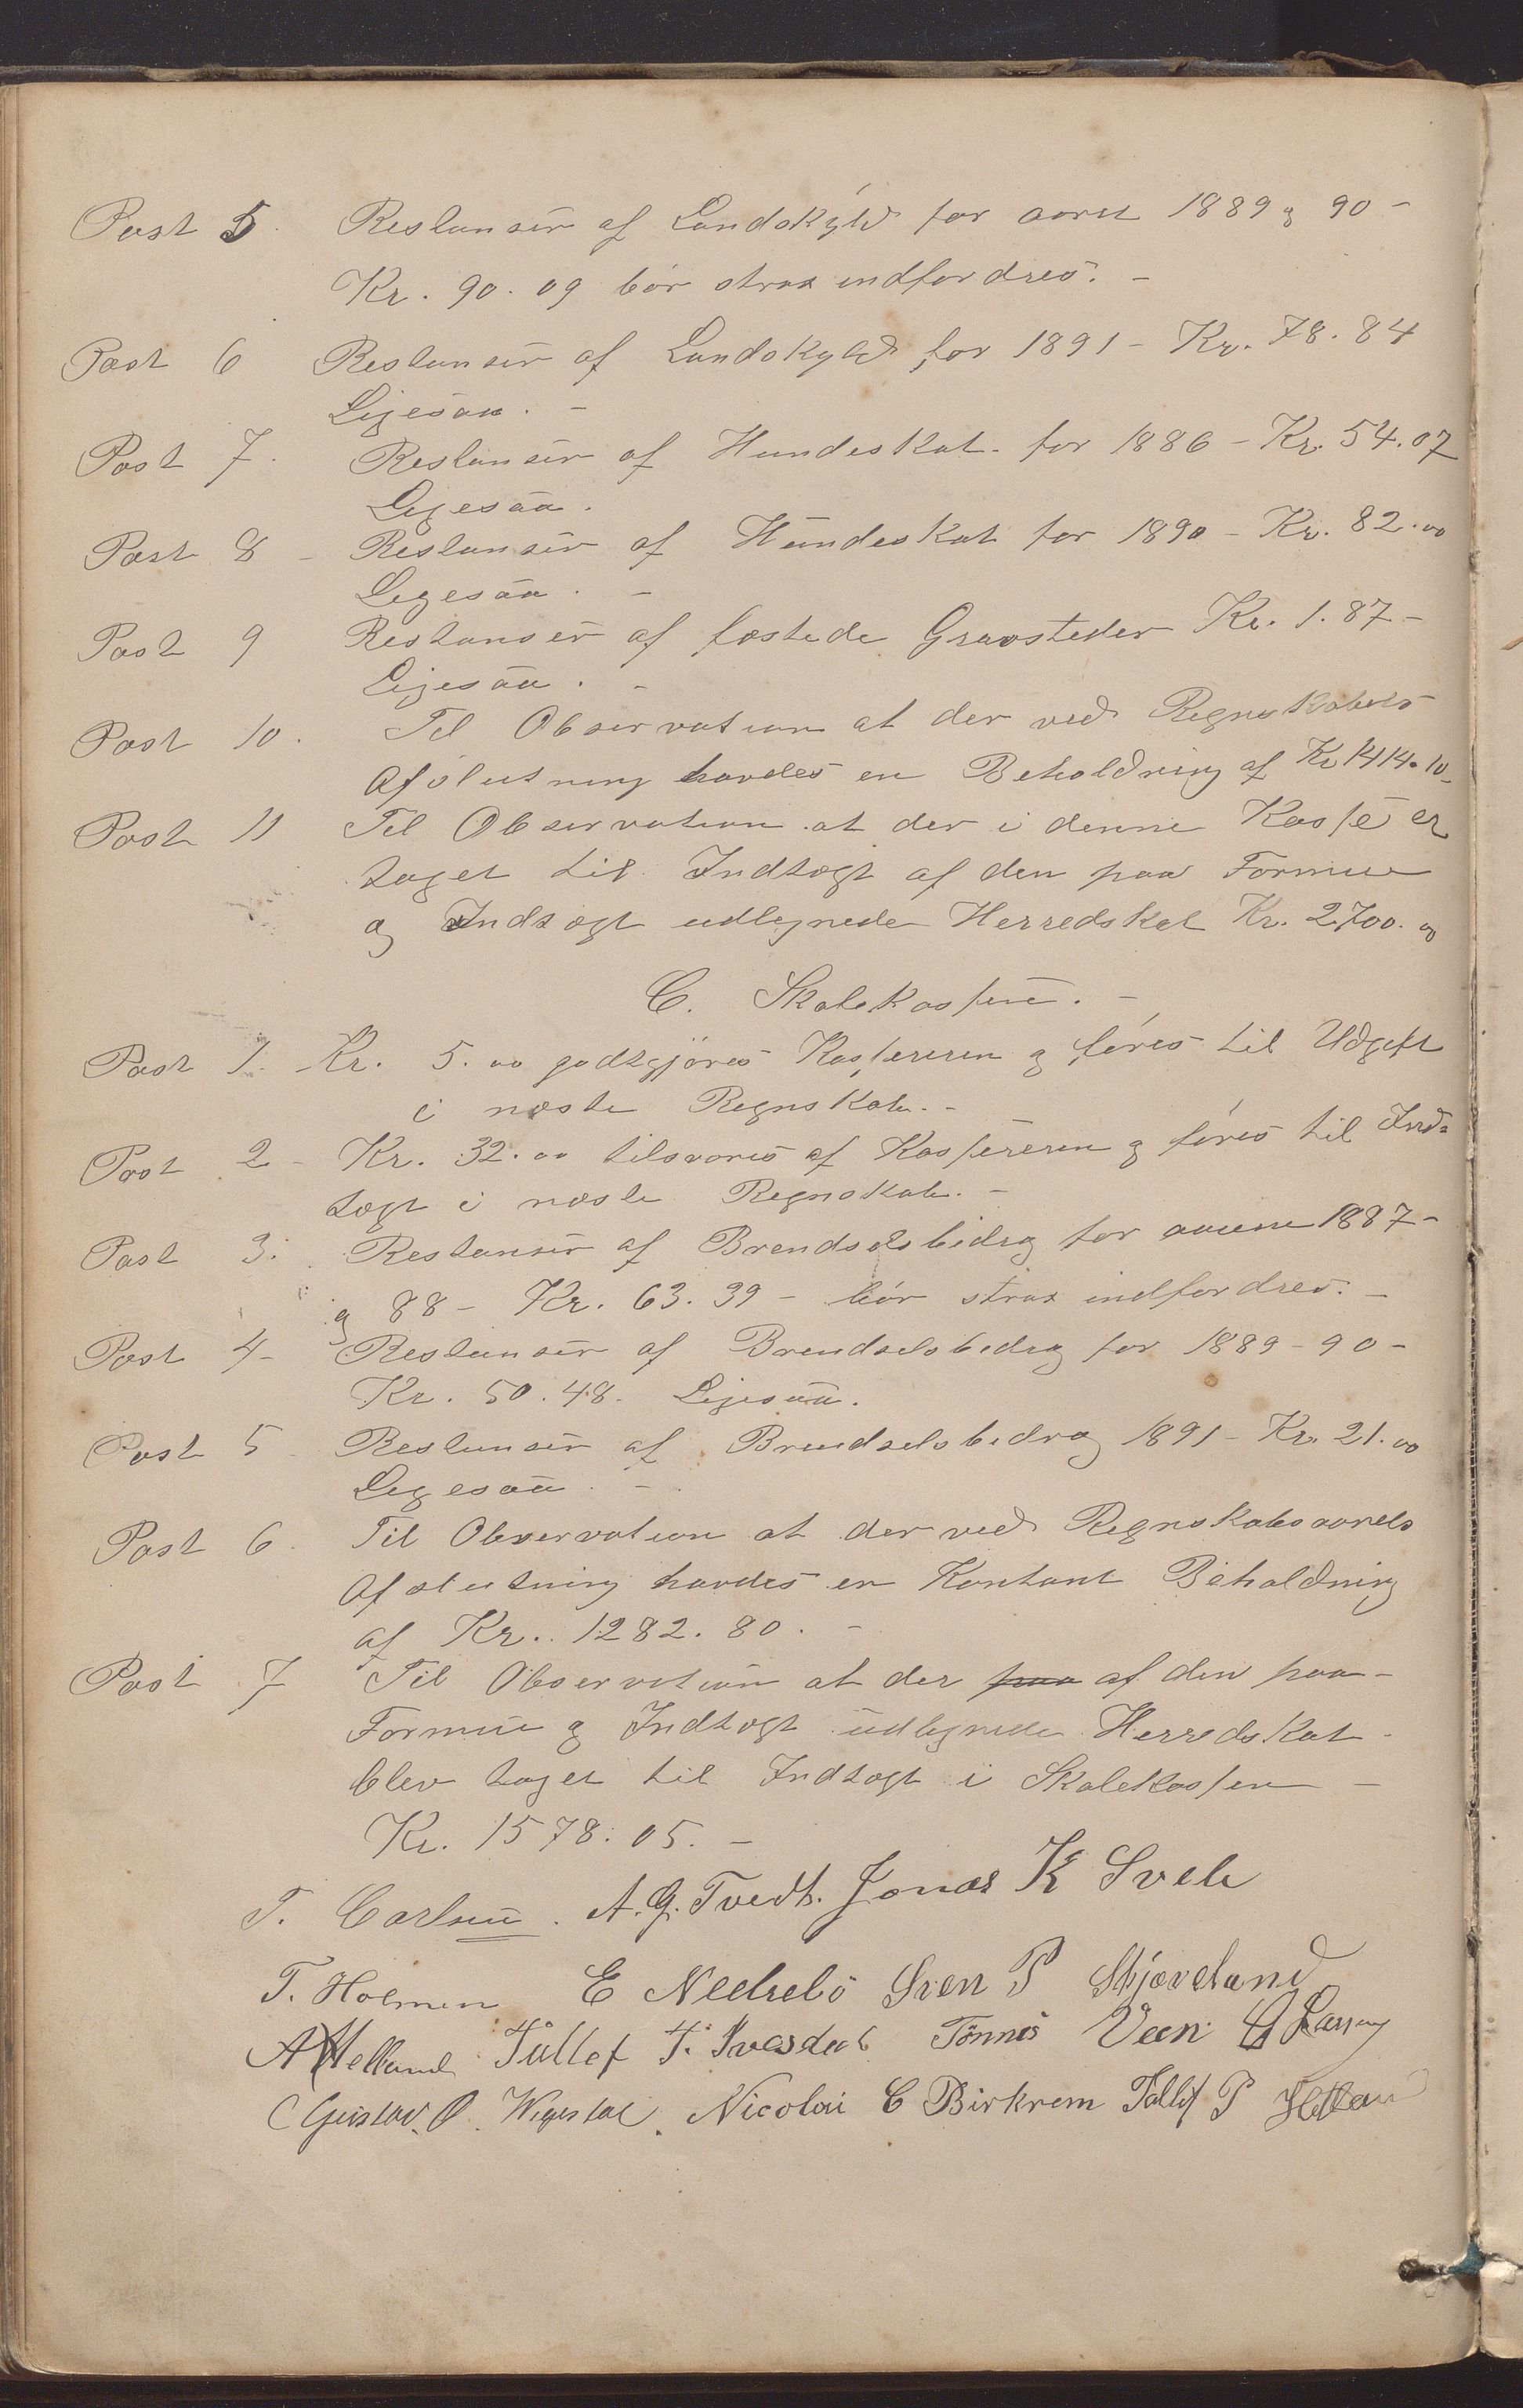 Post 5. Restanser af Landskyld for aaret 1889 og 90 -
Kr. 90.09 bør strax indfordres. -
Post 6 Restanser af Landskyld for 1891 - Kr. 78.84
Ligesaa. -
Post 7. Restanser af Hundeskat for 1886 - Kr. 54.07
Ligesaa.
Post 8 - Restanser af Hundeskat for 1890 - Kr. 82.00
Ligesaa. -
Post 9 Restanser af fæstede Gravsteder Kr. 1.87 -
Ligesaa. -
Post 10. Til Observation at der ved Regnskabets
Afslutning havdes en Beholdning af Kr 1414.10 -
Post 11 Til Observation at der i denne Kasse er
taget til Indtægt af den paa Formue
og Indtægt udlignede Herredskat Kr. 2700.00
C. Skolekassen. -
Post 1. Kr. 5.00 godtgjøres Kassereren og føres til Udgift
i næste Regnskab. -
Post 2 - Kr. 32.00 tilsvares af Kassereren og føres til Ind=
tægt i næste Regnskab. -
Post 3. Restanser af Brendselsbidrag for aarene 1887 -
og 88 - Kr. 63.39 - bør strax indfordres. -
Post 4 - Restanser af Brendselsbidrag for 1889 - 90 -
Kr. 50.48. Ligesaa.
Post 5 Restanser af Brendselsbidrag 1891 - Kr. 21.00
Ligesaa. -
Post 6. Til Observation at der ved Regnskabsaarets
Afslutning havdes en Kontant Beholdning
af Kr. 1282.80. -
Post 7 Til Observation at der paa af den paa -
Formue og Indtægt udlignede Herredskat -
blev taget til Indtægt i Skolekassen -
Kr. 1578.05. -
T. Carlsen. A. G. Tvedt. Jonas K Svele
T. Holmen E Nedrebø Sven P Skjæveland
A Helland Tullef T. Ivesdal Tønnes Veen
Gustav O. Vigestad. Nicolai C Birkrem Tollef P Hetland